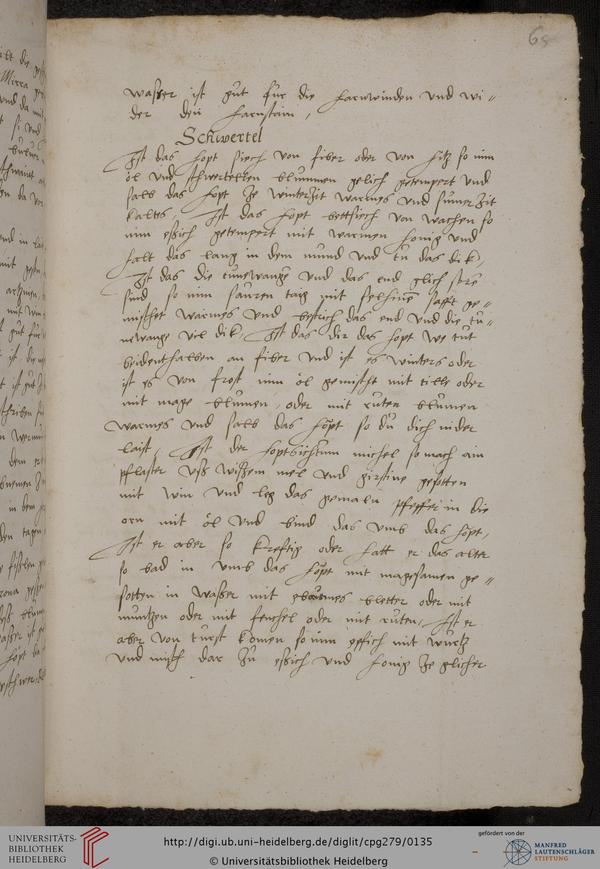 65
wasser ist gut fur die harnwinden vnd wi-
der den harnstain,
Schwertel
Ist das hopt siech von fiber oder von hitz so nim
öl vnd schwertellen blummen gelich getempert vnd
salb das hopt ze winterzit warmes vnd sumerzit
kaltes, Ist das höpt bettsiech von wachen so
nim essich getempert mit warmen honig vnd
halt das lang in dem mund vnd tu das dik,
Ist das die tinewange vnd das end glich
sind so nim suren taig mit safft ge-
mischet warmes vnd bestrich das end vnd die tu-
newange vil dik, Ist das dir das hopt we tut
beidenthalben an fiber vnd ist es winters oder
ist es von frost nim öl gemischt mit tille oder
mit mage blumen, oder mit ruten blumen
warmes vnd salb das höpt so du dich nider
laist, Ist der hoptsichtum michel so mach ain
pflaster vss wissem mel vnd girstine gesotten
mit win vnd leg das gemaln pfeffer in die
orn mit öl vnd bind das vmb das höpt,
Ist er aber so kreftig oder hatt er das alter
so bad in vmb das höpt mit magesamen ge-
sotten in wasser mit bletter oder mit
muntzen oder mit fenchel oder mit ruten, Ist er
aber von turst komen so nim eppich mit wurtz
vnd misch dar zu essich vnd honig ze glicher
UNIVERSITÄTS-
BIBLIOTHEK
HEIDELBERG
http://digi.ub.uni-heidelberg.de/diglit/cpg279/0135
© Universitätsbibliothek Heidelberg
gefördert von der
MANFRED
LAUTENSCHLÄGER
STIFTUNG